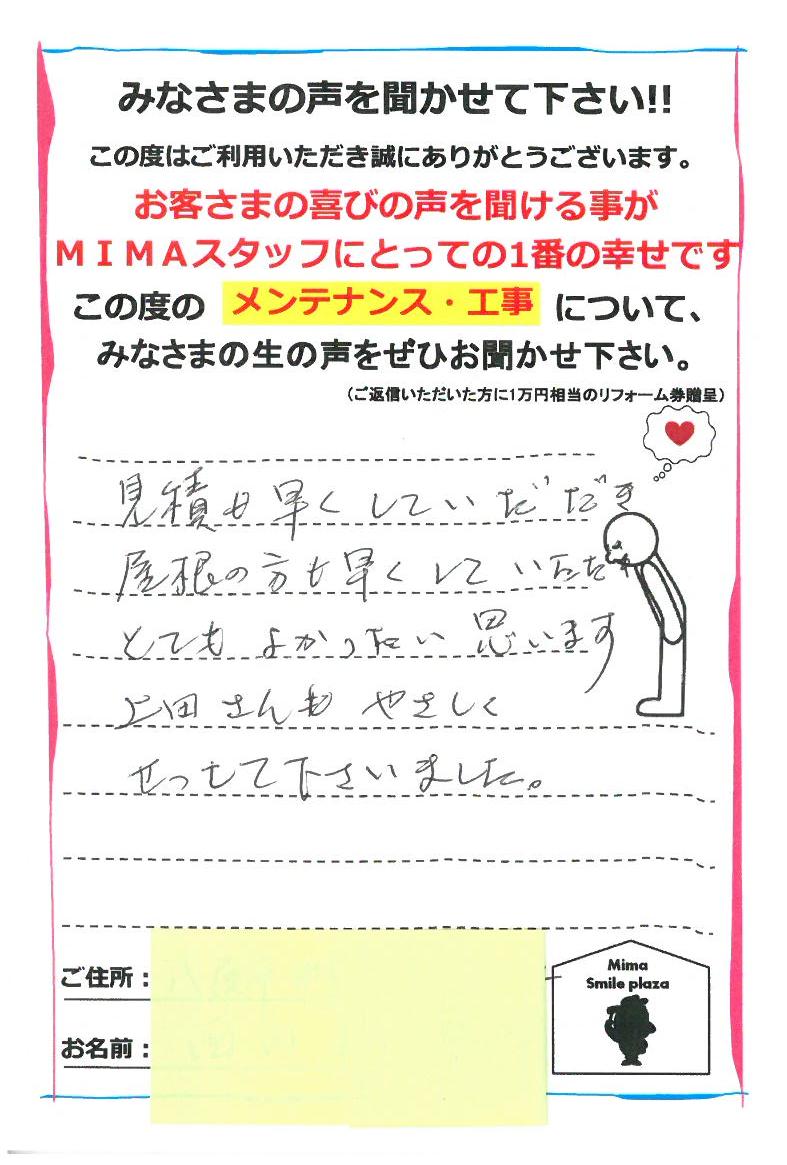 みなさまの声を聞かせて下さい!!
この度はご利用いただき誠にありがとうございます。
お客さまの喜びの声を聞ける事が
ＭＩＭＡスタッフにとっての1番の幸せです
この度の メンテナンス・工事 について、
みなさまの生の声をぜひお聞かせ下さい。
（ご返信いただいた方に1万円相当のリフォーム券贈呈）
見積も早くしていだだき
屋根の方も早くしていただ
とてもよかったい思います
上田さんもやさしく
せっして下さいました。
ご住所：
お名前：
Mima
Smile plaza